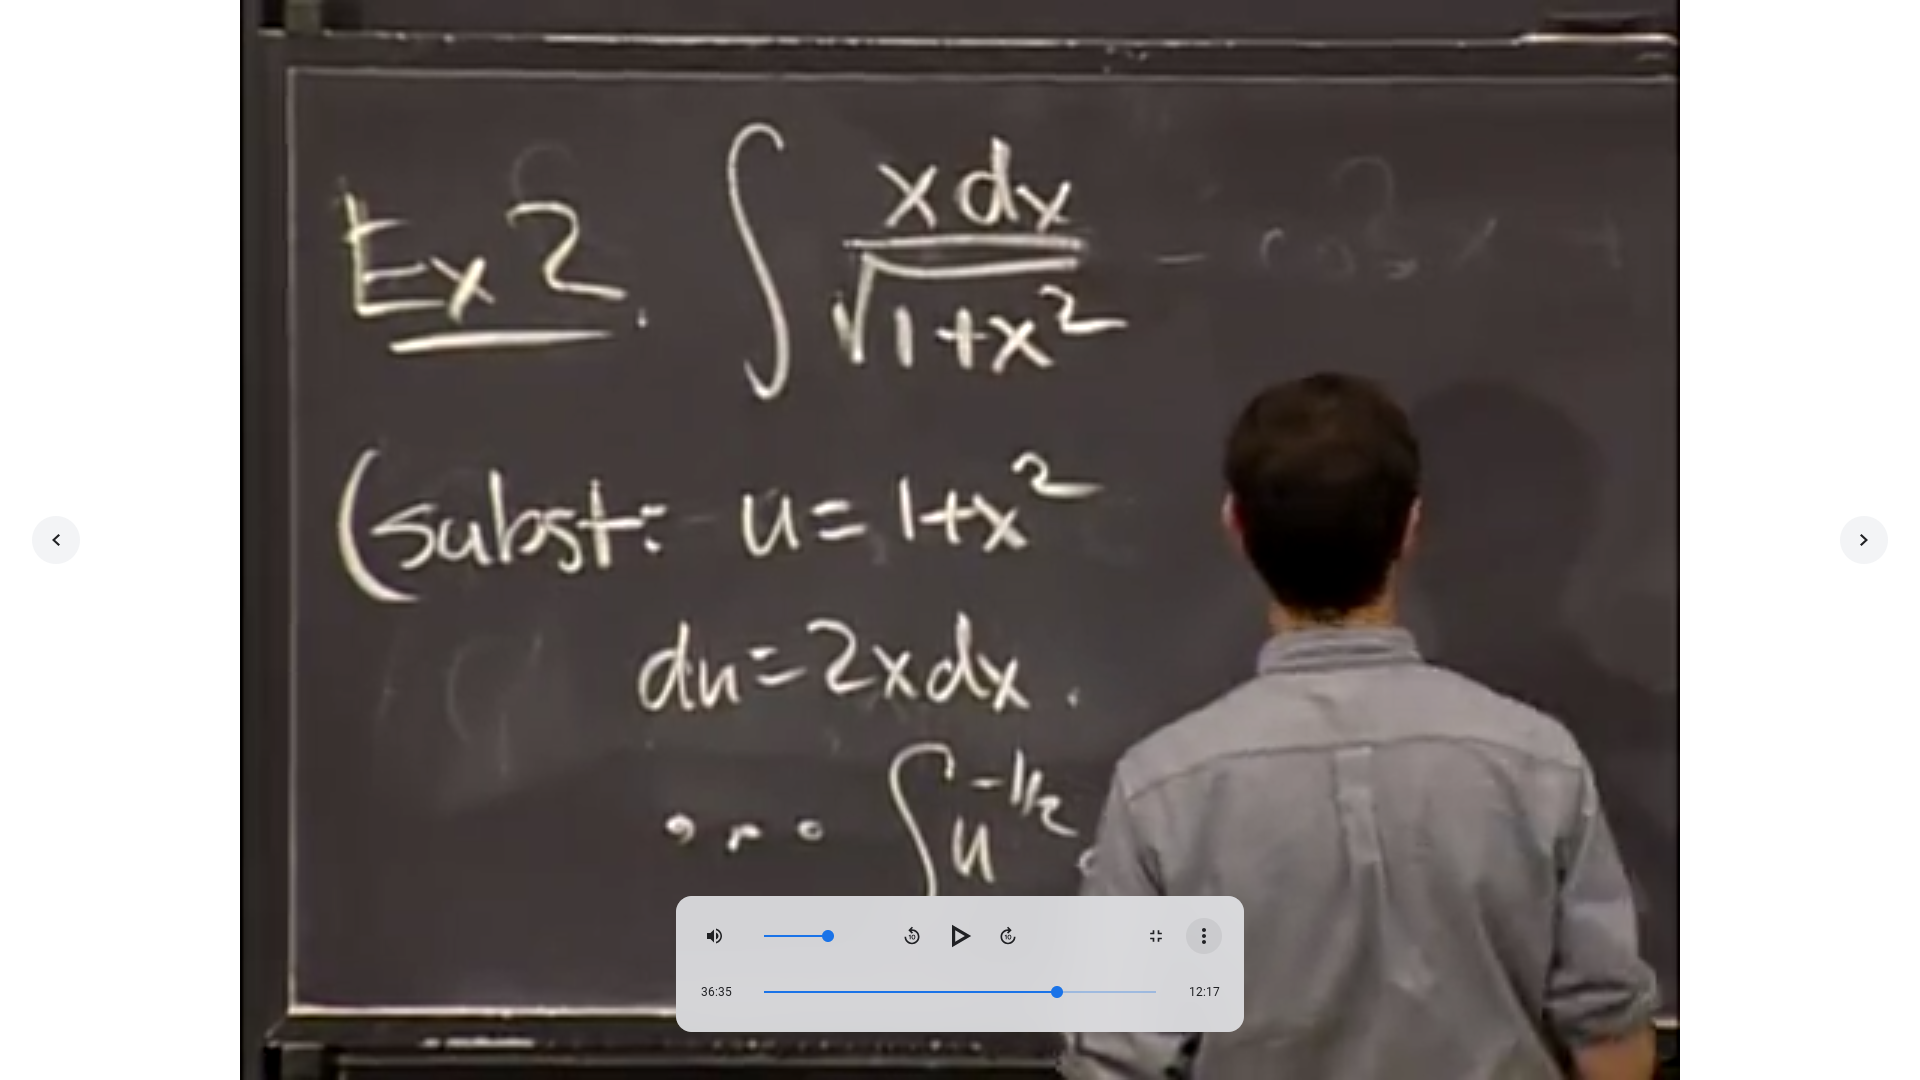 Ex 2. ∫ x dx / √(1+x²)
(subst: u = 1+x²
du = 2x dx.
... ∫ u^(-1/2)
36:35 12:17